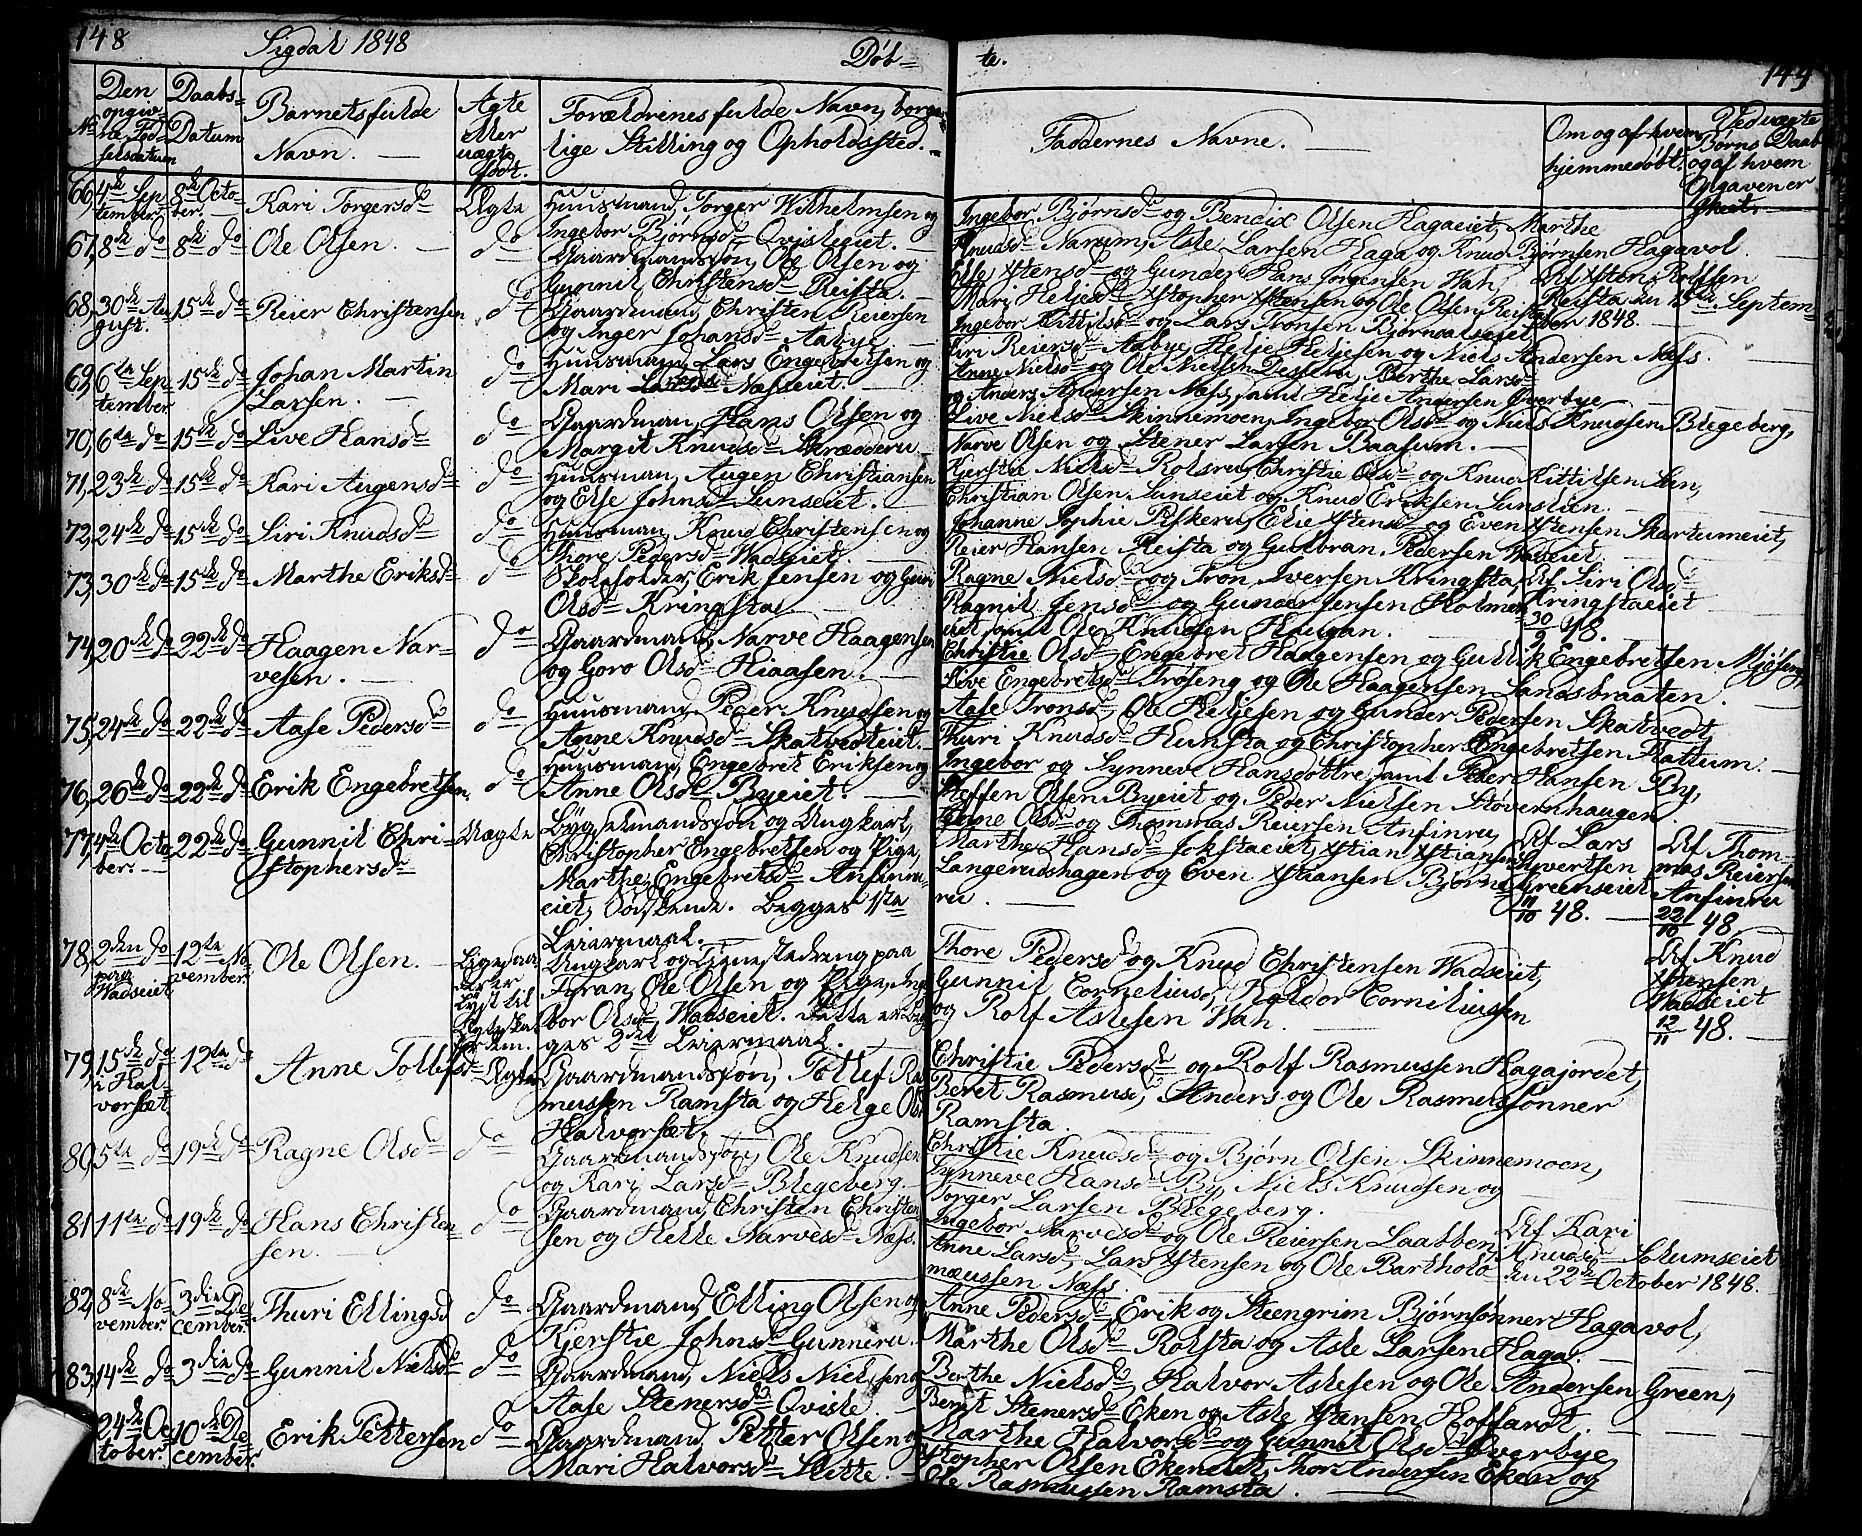 148 Sigdal 1848 Døb-
te. 149
No Den opgivne Fødselsdatum
Daabs-Datum
Barnets fulde Navn.
Ægte eller uægte født.
Forældrenes fulde Navn, borgerlige Stilling og Opholdssted.
Faddernes Navne.
Om og af hvem hjemmedøbt.
Ved uægte Børns Daab og af hvem Opgaven er skeet.
66, 4de September. 8de October. Kari Torgersdr Ægte Huusmand, Torger Wilhelmsen og
Ingebor Bjørnsdr Qvisleeiet.
Ingebor Bjørnsdr og Bendix Olsen Hagaeiet, Marthe
Knudsdr Narum, Asle Larsen Haga og Knud Bjørnsen Hagavol.
67, 8de do 8de do Ole Olsen. do Gaardmandssøn, Ole Olsen og
Gunnil Christensdr Reista.
Else Xstensdr og Gunder Hans Jørgensen Wah,
Mari Heljesdr Xstopher Xstensen og Ole Olsen Reista
Af Xsten Rolfsen
Reista den 15de September 1848.
68, 30de August. 15de do Reier Christensen do Gaardmand, Christen Reiersen
og Inger Johansdr Aabye.
Ingebor Kittilsdr og Lars Tronsen Bjørndalseiet
Siri Reiersdr Aabye, Helje Heljesen og Niels Andersen Næss.
69, 6te September 15de do Johan Martin
Larsen. do Huusmand, Lars Engebretsen og
Mari Larsdr Næsseiet.
Anne Nielsdr og Ole Nielsen, Berthe Larsdr
og Anders Andersen Næss, samt Helje Andersen Øverbye
70, 6te do 15de do Live Hansdr do Gaardmand, Hans Olsen og
Margit Knudsdr Skrædderu
Live Nielsdr Skinnemoen, Ingebor Olsdr og Niels Knudsen Blegeberg,
Narve Olsen og Stener Larsen Baasum.
71, 23de do 15de do Kari Augensdr do Huusman, Augen Christiansen
og Else Johnsdr Lunseiet.
Kjerstie Nielsdr Rolsrud, Christie Olsdr og Knud Kittilsen Lun,
Christian Olsen Lunseiet og Knud Eriksen Lunslien.
72, 24de do 15de do Siri Knudsdr do Huusman, Knud Christensen og
Thore Pedersdr Wadseiet.
Johanne Sophie Piskeru, Elie Xstensdr og Even Xstensen Skartumeiet,
Reier Hansen Reista og Gulbran Pedersen Wadseiet.
73, 30de do 15de do Marthe Eriksdr do Skoleholder, Erik Jensen og Guri
Olsdr Kringsta.
Ragne Nielsdr og Tron Iversen Kringsta,
Ragnil Jensdr og Gunder Jensen Holmen
eiet samt Ole Knudsen Haugan.
Af Siri Olsdr
Kringstaeiet
30/9 48.
74, 20de do 22de do Haagen Nar-
vesen. do Gaardmand, Narve Haagensen
og Goro Olsdr Kiaasen.
Christie Olsdr, Engebret Haagensen og Gullik Engebretsen Mjøseng,
Live Engebretsdr Frøseng og Ole Haagensen Landsbraaten.
75, 24de do 22de do Aase Pedersdr do Huusmand, Peder Knudsen og
Anne Knudsdr Skatvedteiet.
Aase Tronsdr, Ole Heljesen og Gunder Pedersen Skatvedt,
Thuri Knudsdr Hunsta og Christopher Engebretsen Flattum.
76, 26de do 22de do Erik Engebretsen. do Huusmand, Engebret Eriksen og
Anne Olsdr Byeeiet.
Ingebor og Synneve Hansdøttre, samt Peder Hansen By,
Steffen Olsen Byeeiet og Peder Nielsen Støvernhaugen.
77, 4de October. 22de do Gunnil Chri-
stophersdr Uægte Bygselmandssøn og Ungkarl,
Christopher Engebretsen og Pige,
Marthe Engebretsdr Anfinru-
eiet, Sødskende. Begges 1ste
Leiermaal.
Anne Olsdr og Thommas Reiersen Anfinru,
Marthe Hansdr Jokstaeiet, Xstian Xstiansen
Langerudshagen og Even Xstiansen Bjørne-
ru.
Af Lars
Syvertsen
Greenseiet
11/10 48.
Af Thom-
mas Reiersen
Anfinru
22/10 48
78, 2den do paa Wadseiet 12te November. Ole Olsen. Ligesaa, der er lyst til Ægteskab for dem.
Ungkarl og Tjenestedreng paa
Fyran, Ole Olsen og Pige, Inge
bor Olsdr Wadseiet. Dette er beg-
ges 2det Leiermaal.
Thore Pedersdr og Knud Christensen Wadseiet,
Gunnil Corneliusdr, Haldor Corniliussen
og Rolf Aslesen Wah.
Af Knud
Xstensen
Wadseiet
12/11 48.
79, 15de do i Halvorsæt. 12te do Anne Tollefsdr Ægte Gaardmandssøn, Tollef Ras
mussen Ramsta og Helge Olsdr
Halvorsæt.
Christie Pedersdr og Rolf Rasmussen Hagajordet,
Beret Rasmusdr, Anders og Ole Rasmussønner
Ramsta.
80, 5te do 19de do Ragne Olsdr do Gaardmandssøn, Ole Knudsen
og Kari Larsdr Blegeberg.
Christie Knudsdr og Bjørn Olsen Skinnemoen,
Synneve Hansdr By, Niels Knudsen og
Torger Larsen Blegeberg.
81, 11te do 19de do Hans Christen-
sen. do Gaardmand, Christen Christen-
sen og Helle Narvesdr Næss.
Ingebor Narvesdr og Ole Reiersen Laabben,
Anne Larsdr, Lars Xstensen og Ole Bartholo-
mæussen Næss.
Af Kari
Knudsdr Skumseiet
den 22de October 1848.
82, 8de November. 3die December. Thuri Ellingsdr do Gaardmand, Elling Olsen og
Kjerstie Johnsdr Gunneru.
Anne Pedersdr, Erik og Steengrim Bjørnsønner Hagavol,
Marthe Olsdr Rolsta og Asle Larsen Haga.
83, 14de do 3die do Gunnil Nielsdr do Gaardmand, Niels Nielsen og
Aase Stenersdr Qvisle.
Berthe Nielsdr, Halvor Aslesen og Ole Andersen Green,
Beret Stenersdr Eken og Asle Xstensen Hoffardt.
24de October. 10de December. Erik Pettersen do Gaardmand, Petter Olsen og
Mari Halvorsdr Slette.
Marthe Halvorsdr og Gunnil Olsdr Øverbye,
Xstopher Olsen Ekeneiet, Thor Andersen Eken og
Ole Rasmussen Ramsta.